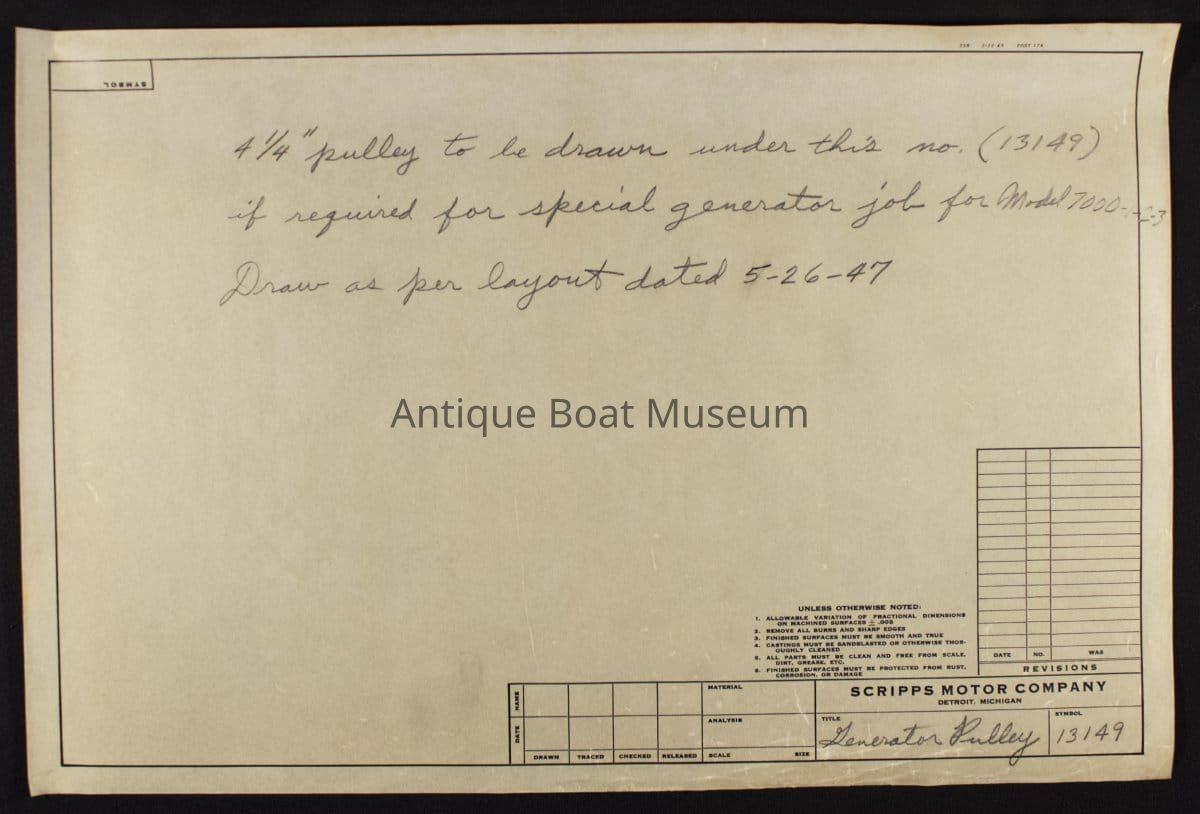 SYMBOL
4 1/4" pulley to be drawn under this no. (13149)
if required for special generator job for Model 7000-1-2-3
Draw as per layout dated 5-26-47
Antique Boat Museum
UNLESS OTHERWISE NOTED:
1. ALLOWABLE VARIATION OF FRACTIONAL DIMENSIONS
ON MACHINED SURFACES ± .005
2. REMOVE ALL BURRS AND SHARP EDGES
3. FINISHED SURFACES MUST BE SMOOTH AND TRUE
4. CASTINGS MUST BE SANDBLASTED OR OTHERWISE THOR-
OUGHLY CLEANED
5. ALL PARTS MUST BE CLEAN AND FREE FROM SCALE,
DIRT, GREASE, ETC.
6. FINISHED SURFACES MUST BE PROTECTED FROM RUST,
CORROSION, OR DAMAGE
DATE NO. WAS
REVISIONS
NAME
DATE
DRAWN TRACED CHECKED RELEASED
MATERIAL
ANALYSIS
SCALE SIZE
SCRIPPS MOTOR COMPANY
DETROIT, MICHIGAN
TITLE
Generator Pulley
SYMBOL
13149